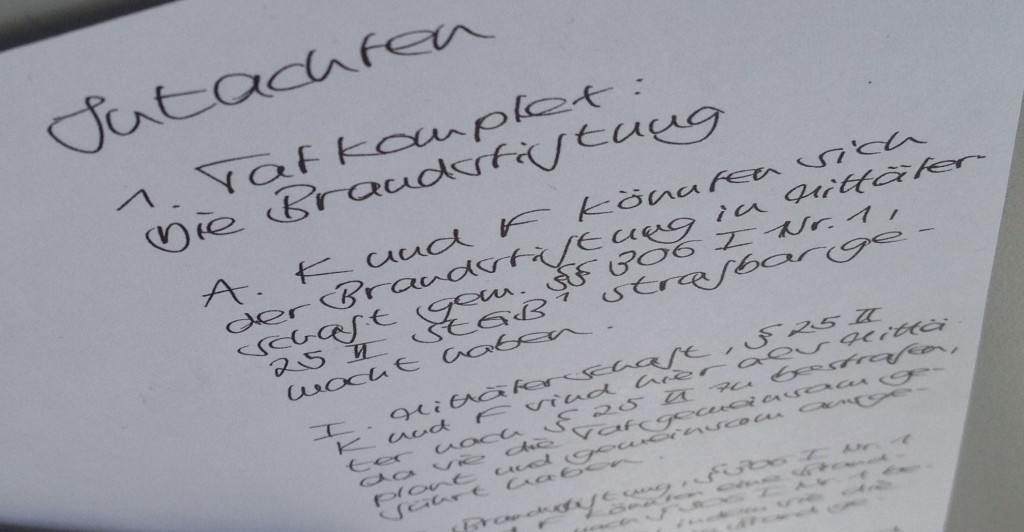 Gutachten
1. Tatkomplet:
Die Brandstiftung
A. K und F könnten sich
der Brandstiftung in Mittäter-
schaft gem. §§ 306 I Nr. 1,
25 II StGB¹ strafbar ge-
macht haben.
I. Mittäterschaft, § 25 II
K und F sind hier als Mittä
ter nach § 25 II zu bestrafen,
da sie die Tat gemeinsam ge-
plant und gemeinsam ausge-
führt haben.
Brandstiftung, § 306 I Nr. 1
F könnten eine Brand-
nach § 306 I Nr. 1 be-
indem sie die